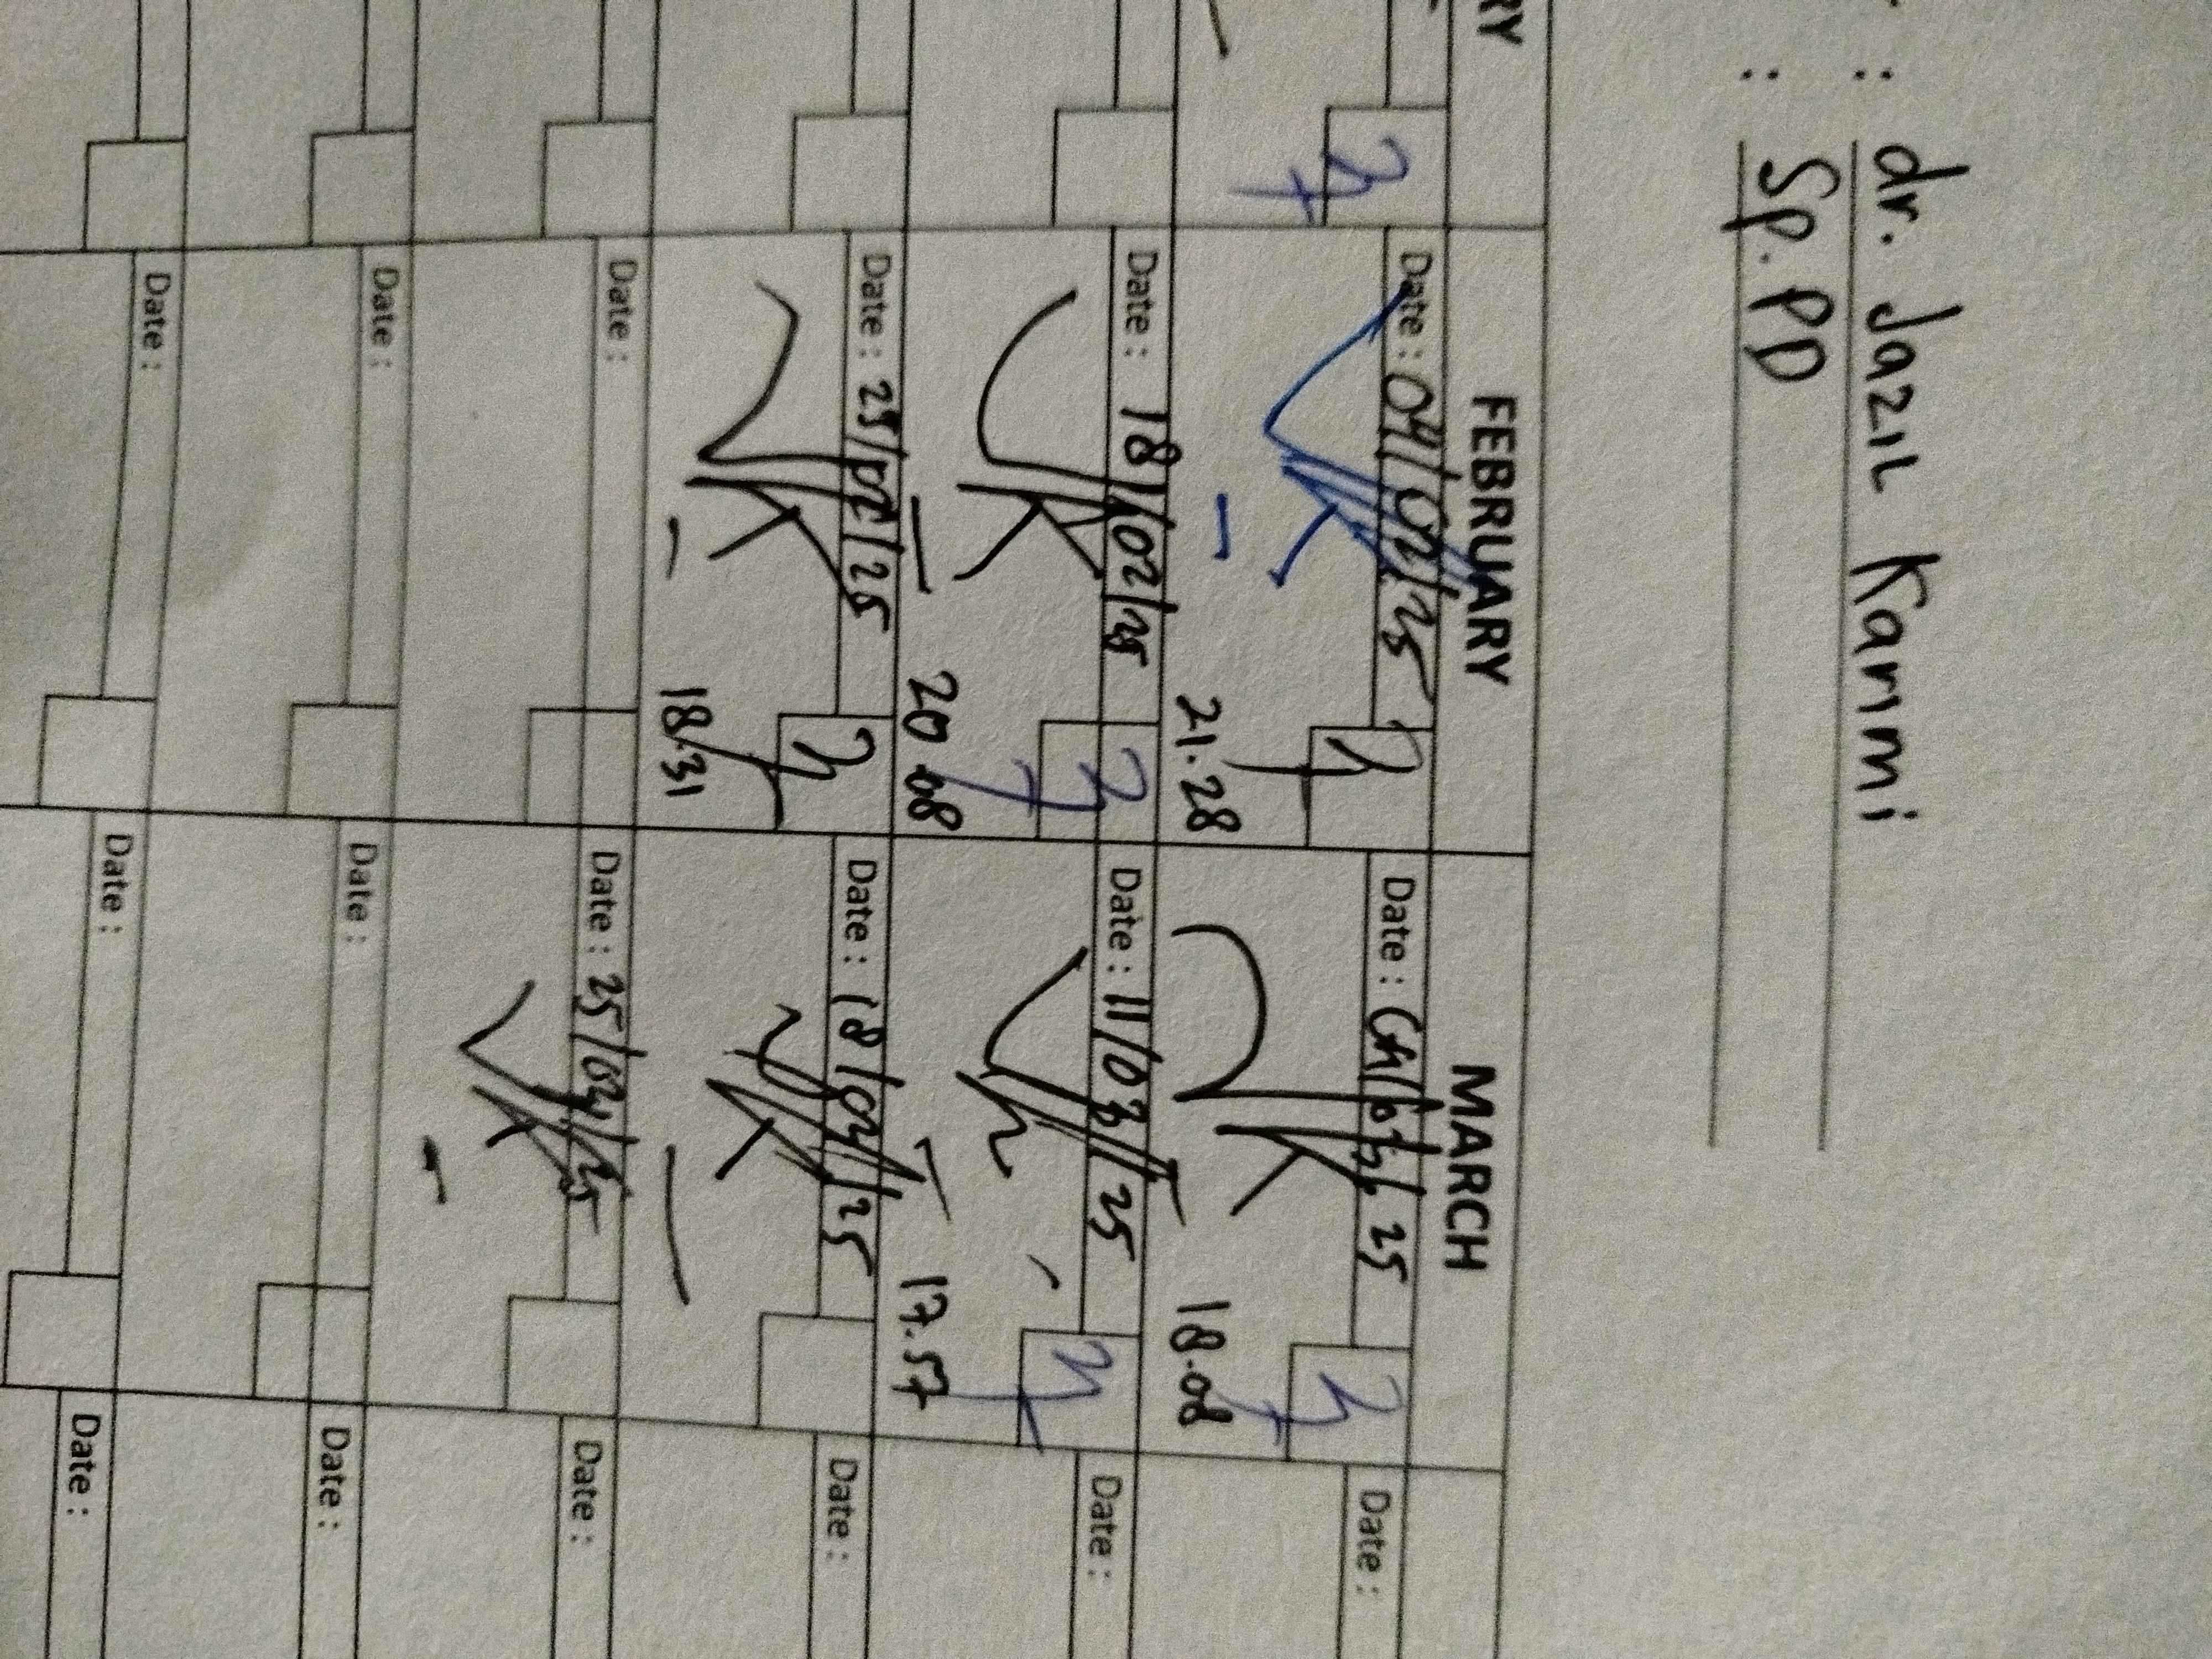 : dr. Jazil Karimi
: Sp. PD
RY
FEBRUARY
MARCH
Date : 04/02/25
Date :
Date :
21.28
18.08
Date : 18/02/25
Date : 11/03/25
Date :
20.08
17.57
Date : 25/02/25
Date : 18/03/25
Date :
18.31
Date :
Date : 25/03/25
Date :
Date :
Date :
Date :
Date :
Date :
Date :